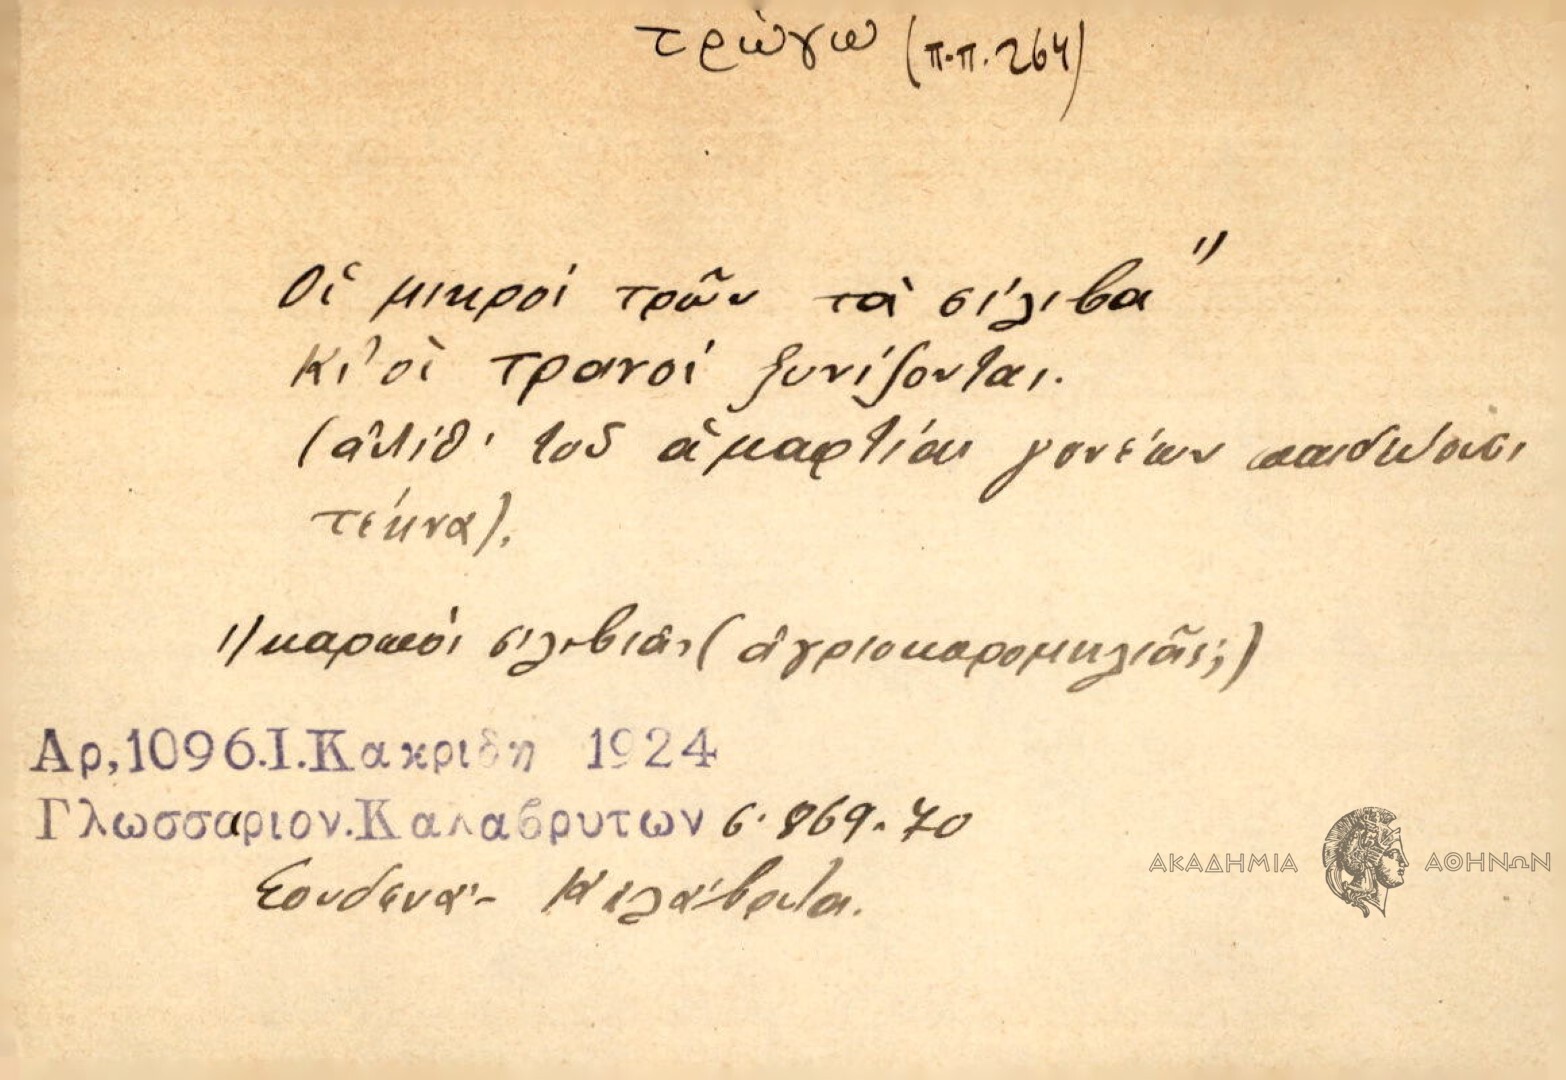 τρώγω (π.π. 264)
Οἱ μικροί τρῶν τὰ σίλιβα 1)
κι' οἱ τρανοί ξυνίζονται.
(ἀντίθ. τοῦ ἁμαρτίαι γονέων παιδεύουσι
τέκνα).
1) καρποί σιλιβιᾶς (ἀγριοκορομηλιᾶς;)
Αρ,1096.Ι.Κακριδη 1924
Γλωσσαριον.Καλαβρυτων σ. 869-70
Σουδενά - Καλάβρυτα.
ΑΚΑΔΗΜΙΑ ΑΘΗΝΩΝ